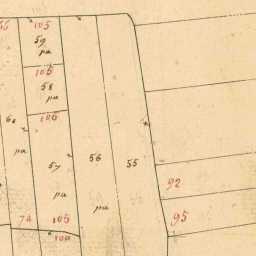 105
59
pa
106
58
pa
106
pa
57
56
55
pa
92
pa
74
105
95
100